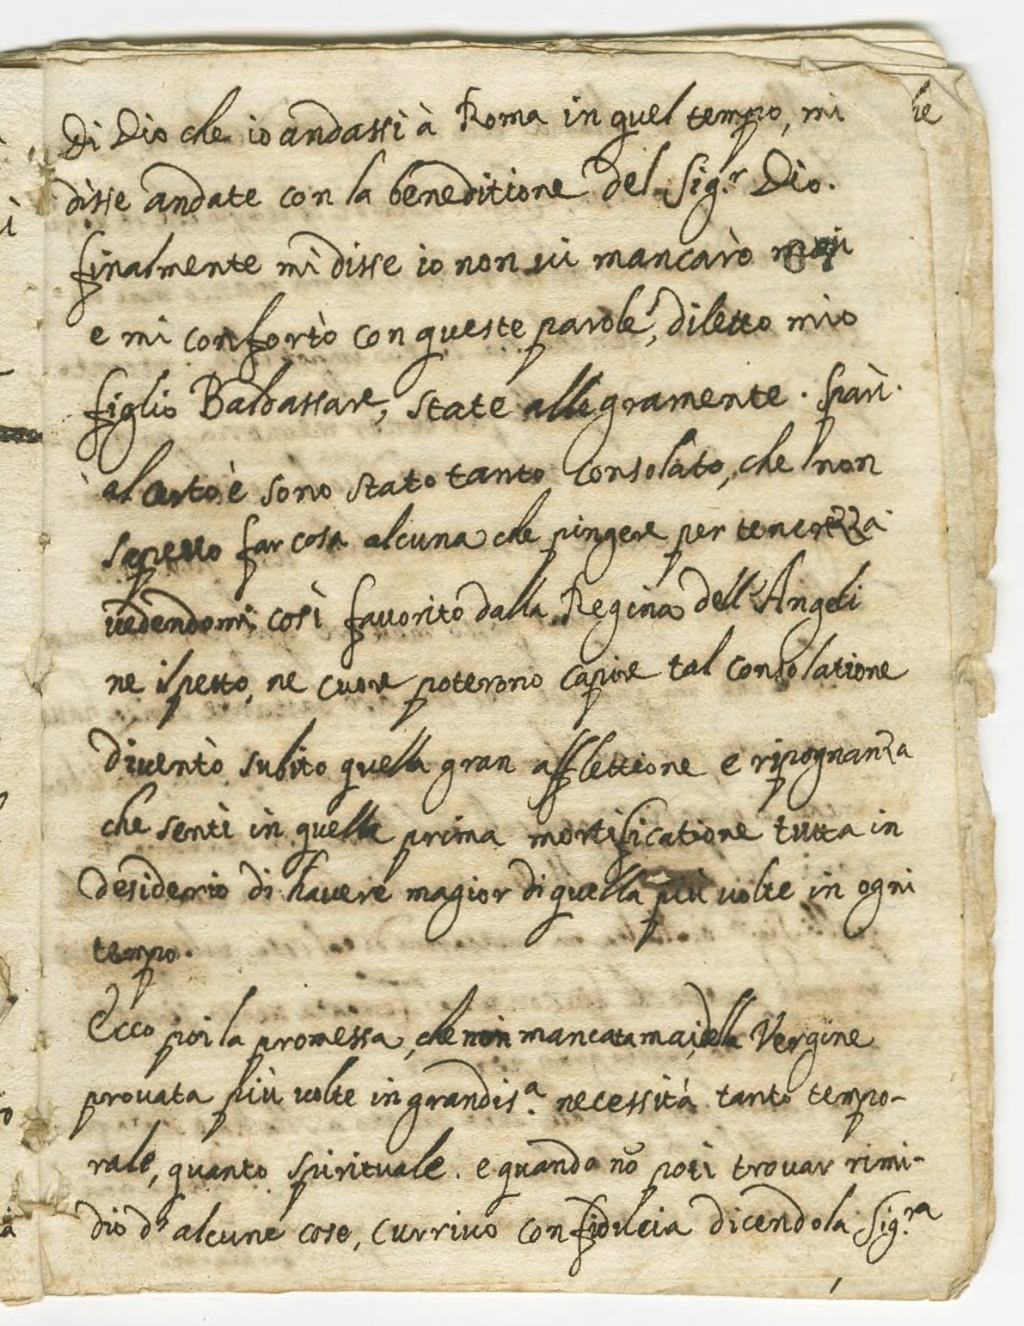 Di Dio che io andassi à Roma in quel tempo, mi
disse andate con la beneditione del Sig.r Dio.
finalmente mi disse io non vi mancarò mai
e mi confortò con queste parole, diletto mio
figlio Baldassare, state allegramente. Sparì.
al certo è sono stato tanto consolato, che non
seppero far cosa alcuna che pingere per tenerezza
vedendomi così favorito dalla Regina dell'Angeli
ne il petto, ne cuore poterono capire tal consolatione
Diventò subito quella gran afflettione e ripognanza
che sentì in quella prima mortificatione tutta in
desiderio di havere magior di quella più volte in ogni
tempo.
Ecco poi la promessa, che non mancata mai, della Vergine
provata più volte in grandis.a necessità tanto tempo-
rale, quanto spirituale. e quando nõ poti trovar rimi-
dio d' alcune cose, currivo con fiducia dicendola Sig.ra